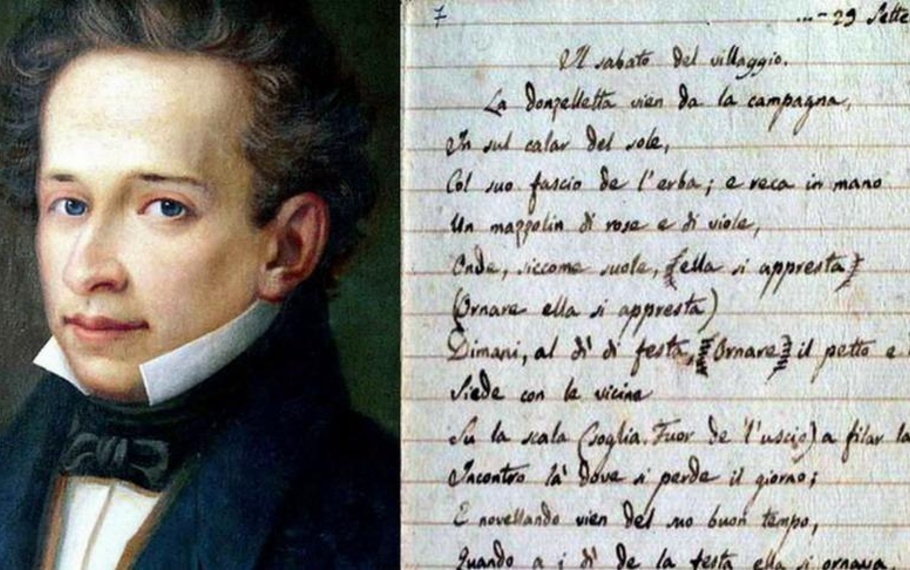 7
...- 29 Sette
Il sabato del villaggio.
La donzelletta vien da la campagna,
In sul calar del sole,
Col suo fascio de l'erba; e reca in mano
Un mazzolin di rose e di viole,
Onde, siccome suole, ella si appresta
(Ornare ella si appresta)
Dimani, al dì di festa, Ornare il petto e
Siede con le vicine
Su la scala (soglia. Fuor de l'uscio) a filar la
Incontro là dove si perde il giorno;
E novellando vien del suo buon tempo,
Quando a i dì de la festa ella si ornava,